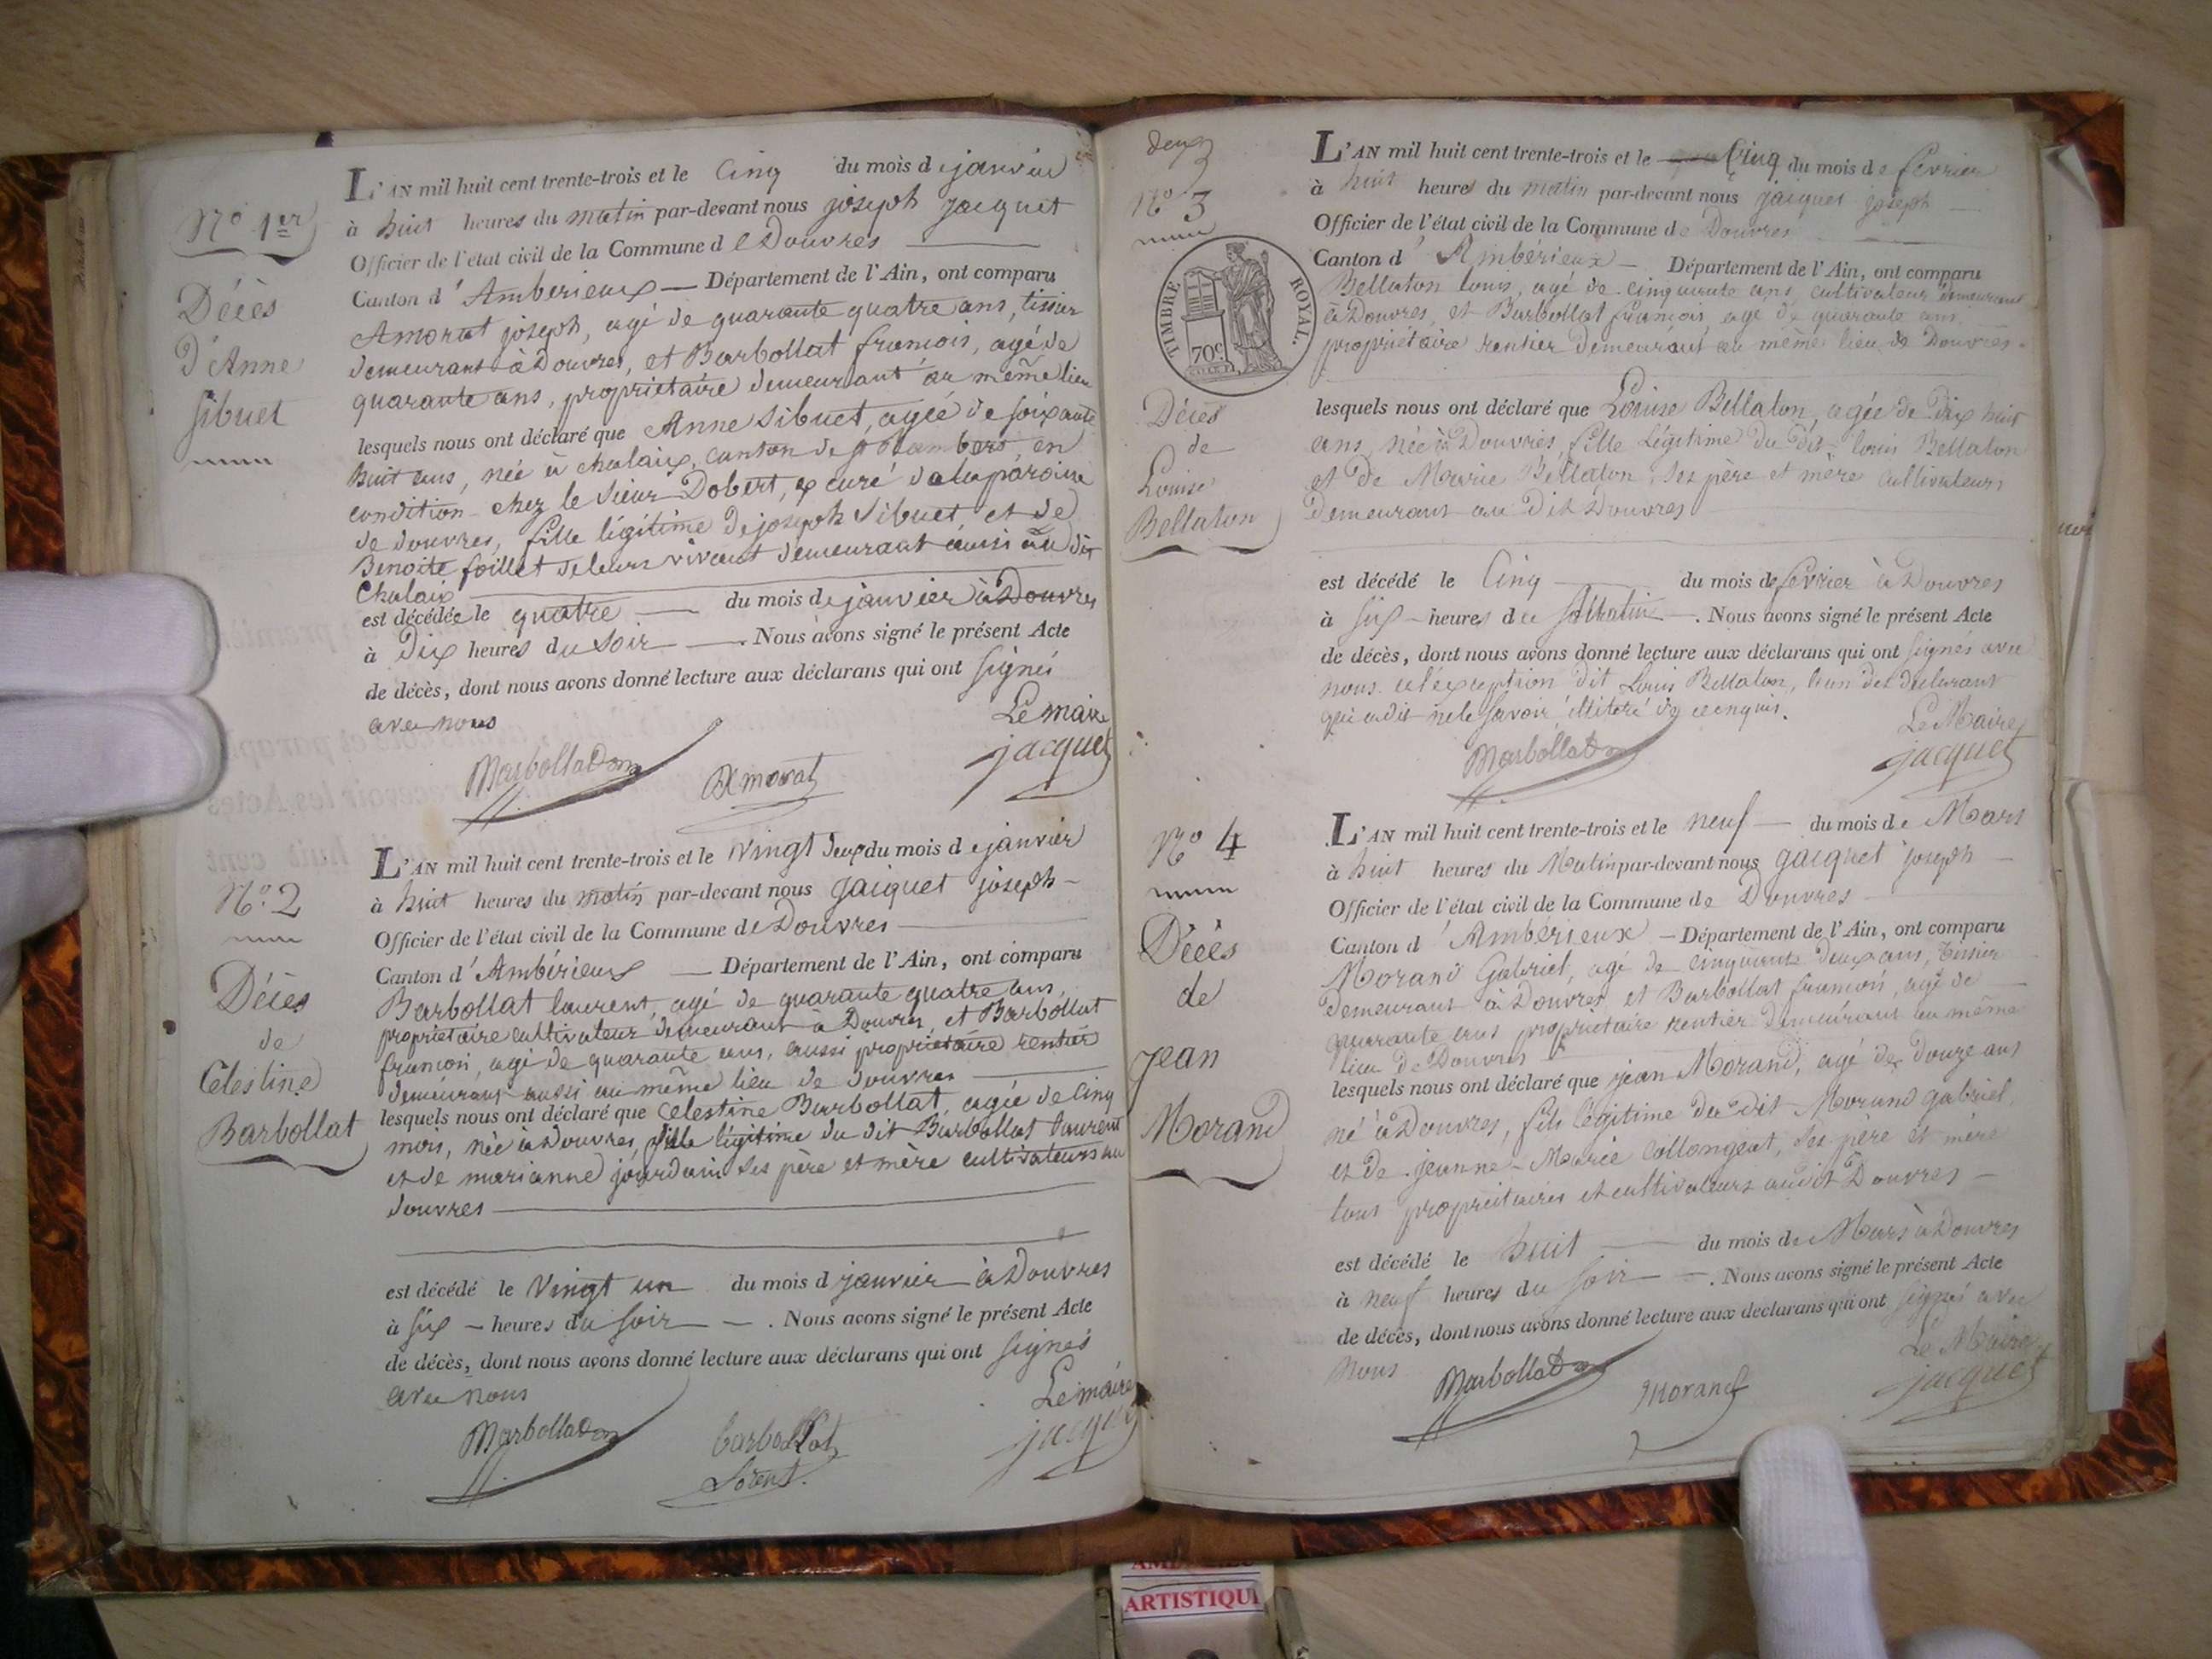 No 1er
Décès
d'Anne
Sibuet
L'AN mil huit cent trente-trois et le Cinq du mois de janvier
à huit heures du matin par-devant nous joseph Jacquet
Officier de l'état civil de la Commune de Douvres
Canton d'Ambérieux — Département de l'Ain, ont comparu
Amorat joseph, agé de quarante quatre ans, tissier
demeurant à Douvres, et Barbollat francois, agé de
quarante ans, propriétaire demeurant au même lieu
lesquels nous ont déclaré que Anne Sibuet, agée de soixante
huit ans, née à chalaix, canton de St Rambert, en
condition chez le sieur Dobert, ex curé de la paroisse
de douvres, fille légitime de joseph Sibuet, et de
Benoite foillet de leurs vivant demeurant aussi au dit
Chalaix
est décédée le quatre — du mois de janvier à Douvres
à Dix heures du soir — . Nous avons signé le présent Acte
de décès, dont nous avons donné lecture aux déclarans qui ont signés
avec nous
Le maire
Barbollat Amorat jacquet
No. 2
Décès
de
Célestine
Barbollat
L'AN mil huit cent trente-trois et le vingt deux du mois de janvier
à huit heures du matin par-devant nous Jacquet joseph —
Officier de l'état civil de la Commune de Douvres —
Canton d'Ambérieux — Département de l'Ain, ont comparu
Barbollat laurent, agé de quarante quatre ans,
propriétaire cultivateur demeurant à Douvres, et Barbollat
francois, agé de quarante ans, aussi propriétaire rentier
demeurant aussi au même lieu de douvres
lesquels nous ont déclaré que Celestine Barbollat, agée de cinq
mois, née à Douvres, fille légitime du dit Barbollat laurent
et de marianne jourdain ses père et mère cultivateurs au
douvres
est décédé le vingt un du mois d janvier à Douvres
à six — heures du soir — . Nous avons signé le présent Acte
de décès, dont nous avons donné lecture aux déclarans qui ont signés
avec nous
Le maire
Barbollat barbollat jacquet
Lorent.
deux
No 3
TIMBRE ROYAL.
70c
Décès
de
Louise
Bellaton
L'AN mil huit cent trente-trois et le Cinq du mois de fevrier
à huit heures du matin par-devant nous jacquet joseph —
Officier de l'état civil de la Commune de Douvres
Canton d'Ambérieux — Département de l'Ain, ont comparu
Bellaton louis, agé de cinquante ans, cultivateur demeurant
à Douvres, et Barbollat francois, agé de quarante ans
propriétaire rentier demeurant au même lieu de Douvres
lesquels nous ont déclaré que Louise Bellaton, agée de dix huit
ans, née à Douvres, fille légitime du dit louis Bellaton
et de Marie Bellaton, ses père et mère cultivateurs
demeurant au dit Douvres
est décédé le Cinq du mois de fevrier à Douvres
à six — heures du Matin — . Nous avons signé le présent Acte
de décès, dont nous avons donné lecture aux déclarans qui ont signés avec
nous à l'exception dit Louis Bellaton, l'un des déclarant
qui a dit ne le savoir de ce enquis.
Le Maire
Barbollat jacquet
No 4
Décès
de
jean
Morand
L'AN mil huit cent trente-trois et le neuf — du mois de Mars
à huit heures du Matin par-devant nous Jacquet joseph —
Officier de l'état civil de la Commune de Douvres
Canton d'Ambérieux — Département de l'Ain, ont comparu
Morand Gabriel, agé de cinquante deux ans, tissier
demeurant à Douvres, et Barbollat francois, agé de
quarante ans propriétaire rentier demeurant au même
lieu de Douvres
lesquels nous ont déclaré que jean Morand, agé de douze ans
né à Douvres, fils légitime du dit Morand gabriel,
et de jeanne-Marie Collongeat, ses père et mère
tous propriétaires et cultivateurs audit Douvres —
est décédé le huit — du mois de Mars à Douvres
à neuf heures du soir — . Nous avons signé le présent Acte
de décès, dont nous avons donné lecture aux déclarans qui ont signés avec
nous Le Maire
Barbollat Morand jacquet
ARTISTIQU